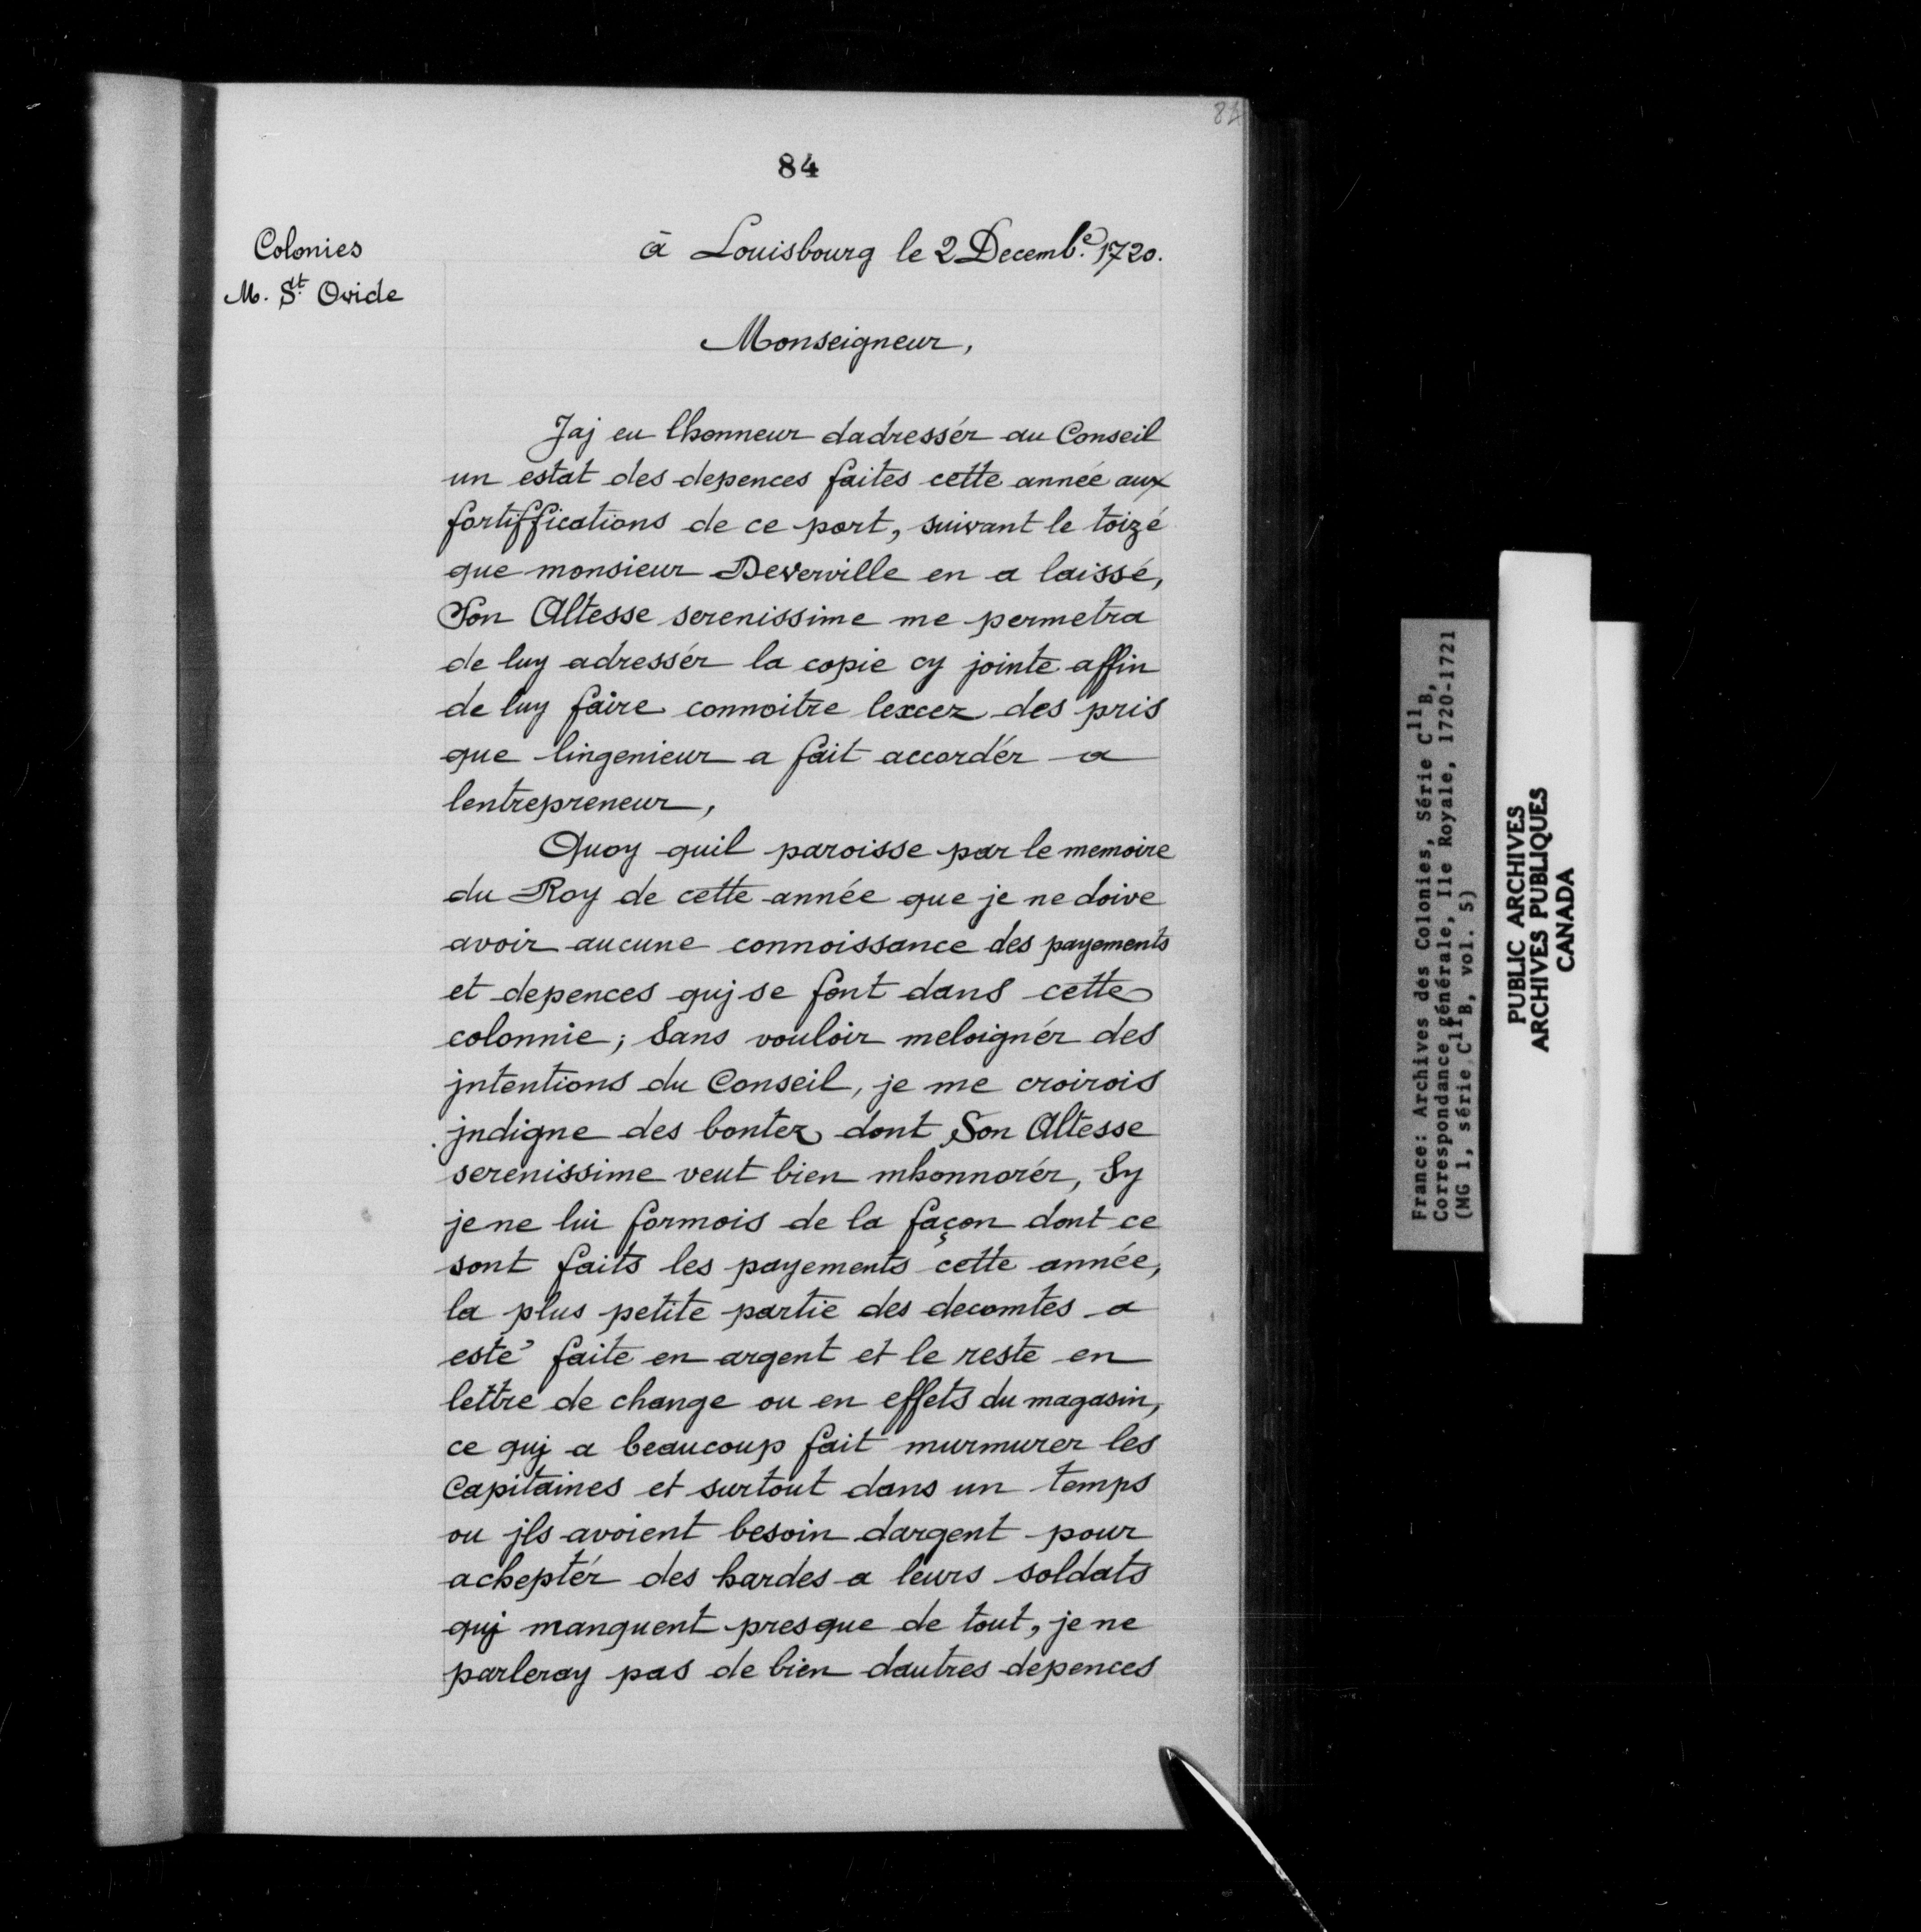 84
84
Colonies
M. St Ovide
à Louisbourg le 2 Decembe. 1720.
Monseigneur,
Jaj eu lhonneur dadressér au Conseil
un estat des depences faites cette année aux
fortiffications de ce port, suivant le toizé
que monsieur Deverville en a laissé,
Son Altesse serenissime me permetra
de luy adressér la copie cy jointe affin
de luy faire connoitre lexcez des pris
que lingenieur a fait accordér a
lentrepreneur,
Quoy quil paroisse par le memoire
du Roy de cette année que je ne doive
avoir aucune connoissance des payements
et depences quj se font dans cette
colonnie; Sans vouloir meloignér des
jntentions du Conseil, je me croirois
jndigne des bontez dont Son Altesse
serenissime veut bien mhonnorér, Sy
je ne lui formois de la façon dont ce
sont faits les payements cette année,
la plus petite partie des decomtes a
esté faite en argent et le reste en
lettre de change ou en effets du magasin,
ce quj a beaucoup fait murmurer les
Capitaines et surtout dans un temps
ou jls avoient besoin dargent pour
acheptér des hardes a leurs soldats
quj manquent presque de tout, je ne
parleray pas de bien dautres depences
France: Archives des Colonies, Série C11B,
Correspondance générale, Ile Royale, 1720-1721
(MG 1, série C11B, vol. 5)
PUBLIC ARCHIVES
ARCHIVES PUBLIQUES
CANADA